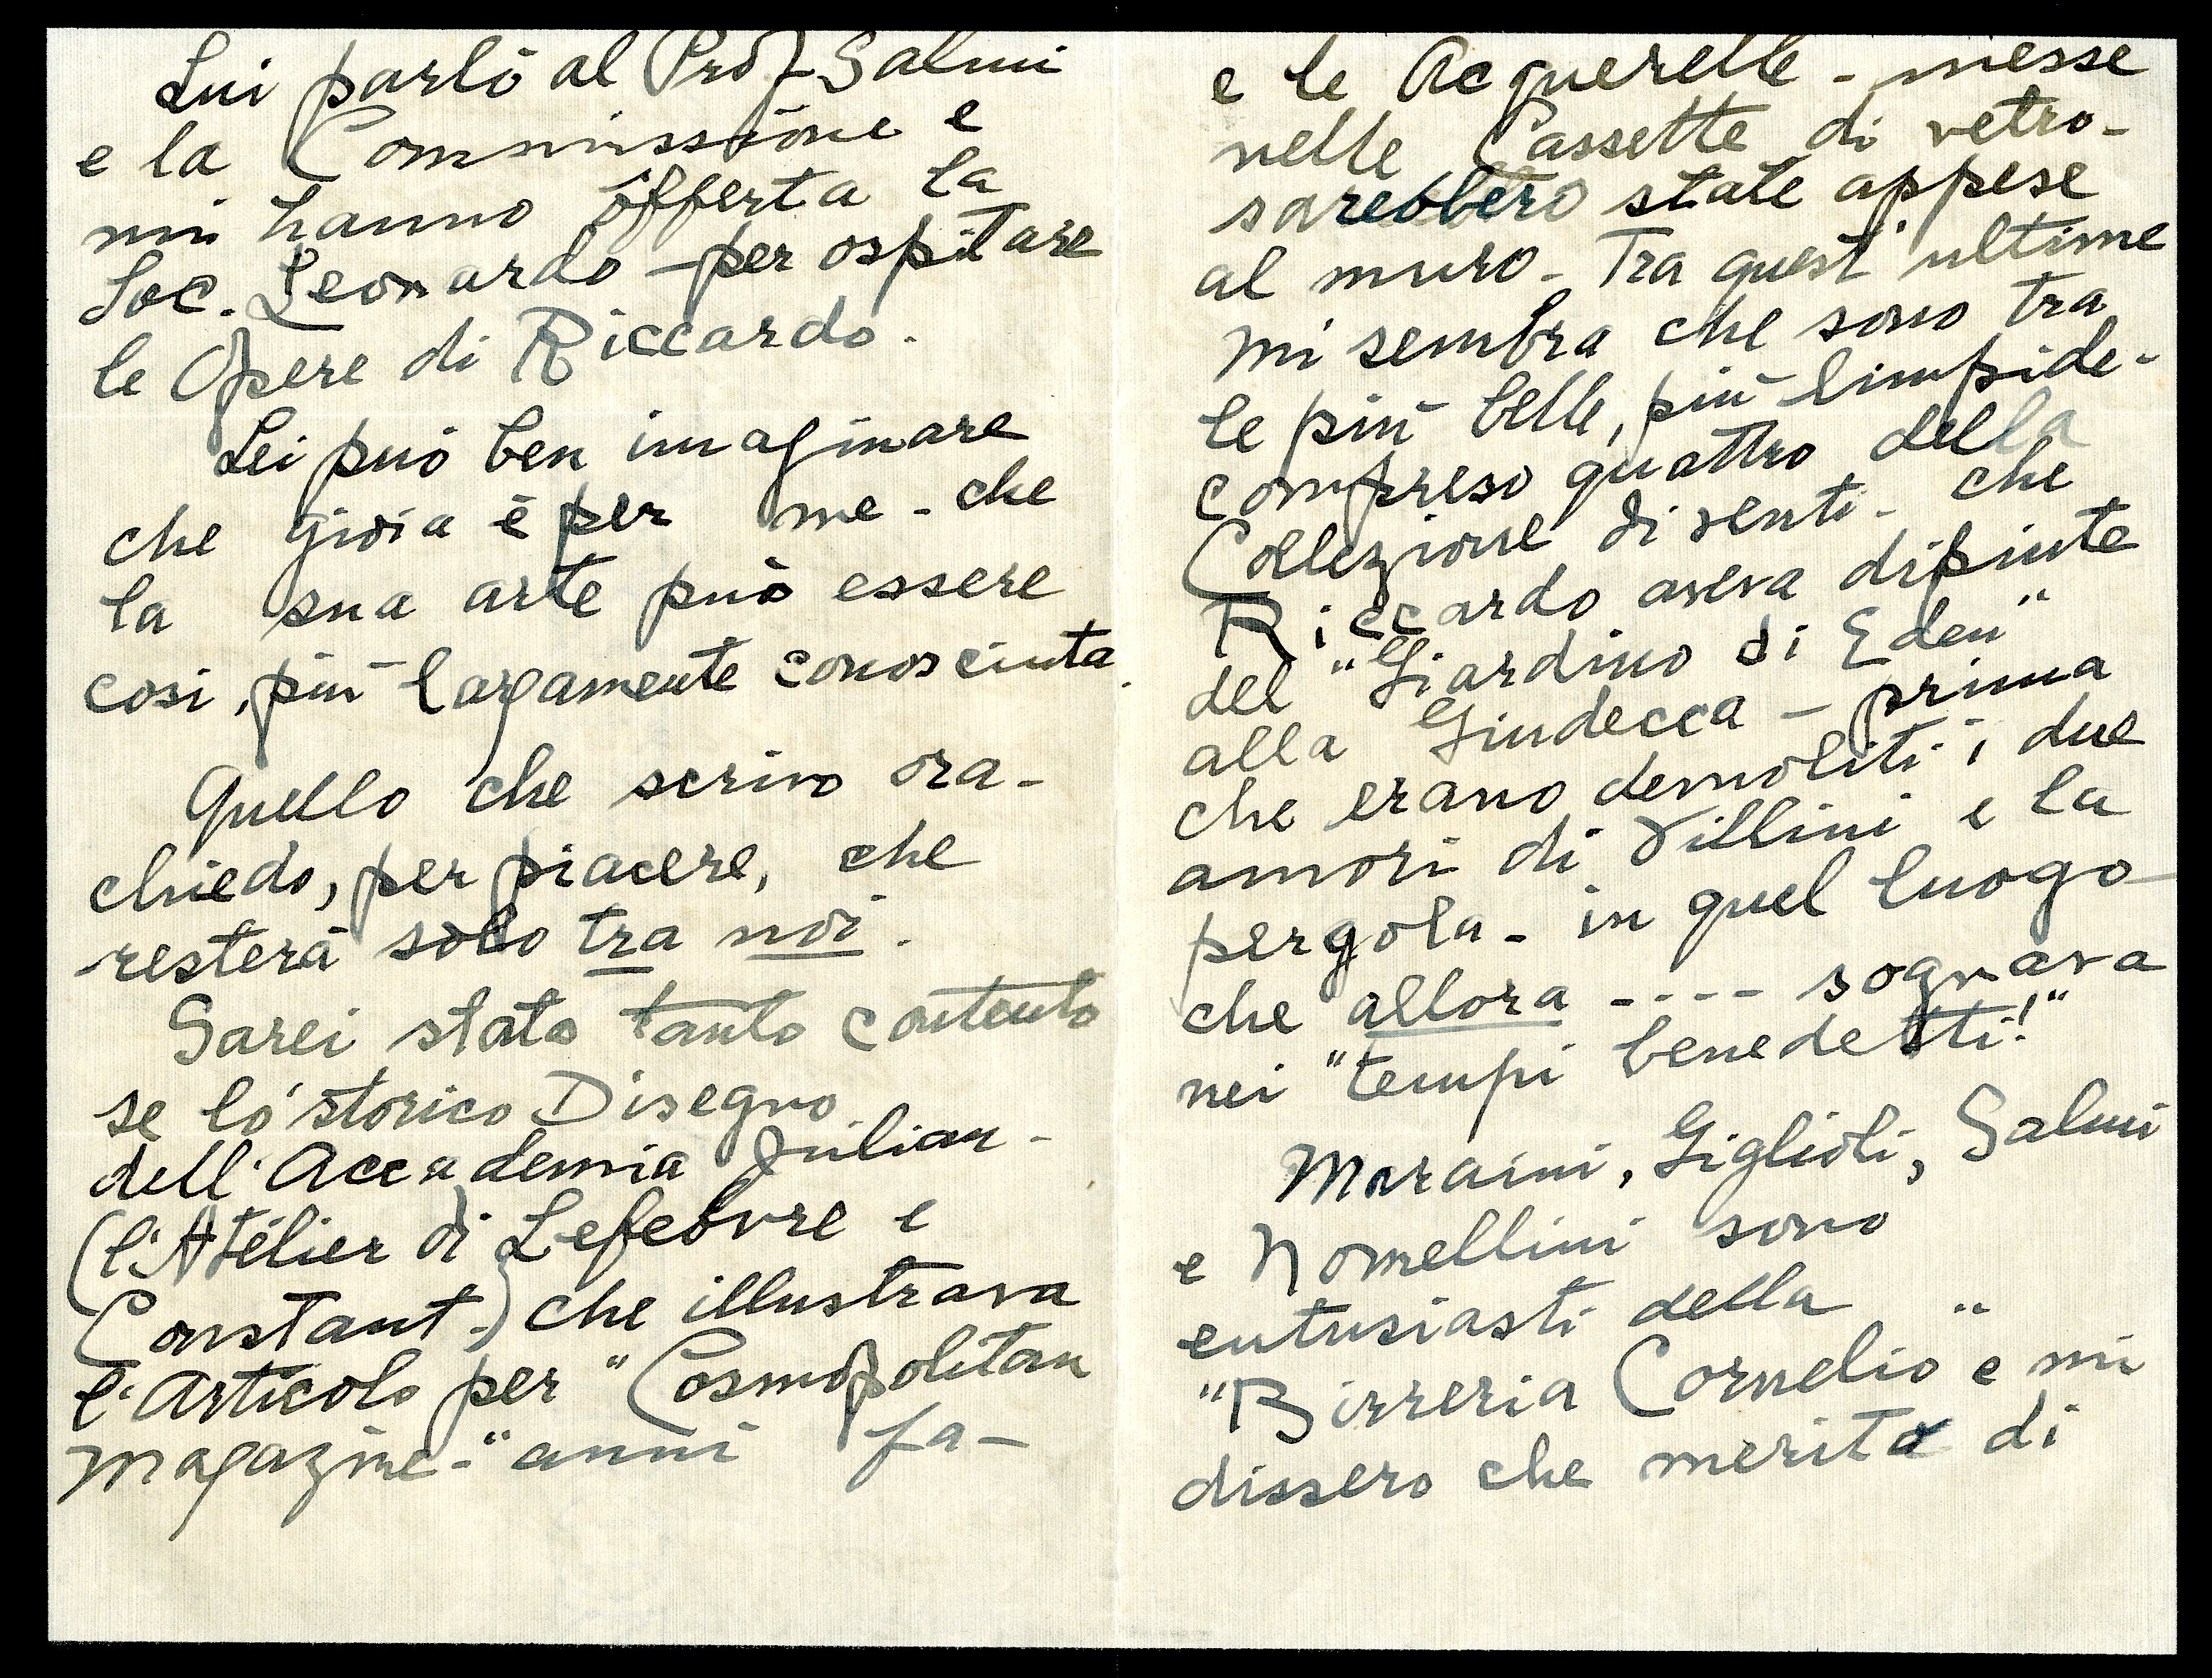 Lui parlò al Prof Salmi
e la Commissione e
mi hanno offerta la
Soc. Leonardo - per ospitare
le Opere di Riccardo.
Lei può ben imaginare
che gioia è per me - che
la sua arte può essere
cosi, più largamente conosciuta.
Quello che scrivo ora -
chiedo, per piacere, che
resterà solo tra noi.
Sarei stato tanto contento
se lo storico Disegno
dell'Accademia Julian -
(l'Atélier di Lefebvre e
Constant.) che illustrava
l'Articolo per "Cosmopolitan
Magazine -" anni fa -
e le Acquerelle - messe
nelle Cassette di vetro -
sarebbero state appese
al muro - Tra quest'ultime
mi sembra che sono tra
le più belle, più limpide -
compreso quattro della
Collezione di venti - che
Riccardo aveva dipinte
del "Giardino di Eden"
alla Giudecca - prima
che erano demoliti i due
amori di Villini e la
pergola - in quel luogo -
che allora ---- sognava
nei "tempi benedetti!"
Maraini, Giglioli, Salmi
e Nomellini sono
entusiasti della
"Birreria Cornelio" e mi
dissero che merita di